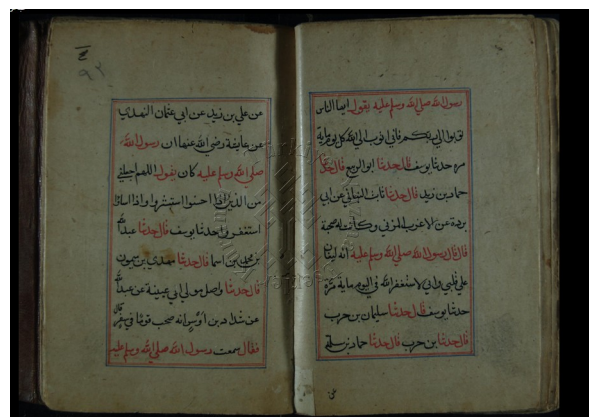 رسول الله صلى الله وسلم عليه يقول ايها الناس
توبوا الى ربكم فاني اتوب الى الله كل يوم ماية
مره حدثنا يوسف قال حدثنا ابو الربيع قال حدثنا
حماد بن زيد قال حدثنا ثابت البناني عن ابي
بردة عن الاغر المزني وكانت له صحبة
قال قال رسول الله صلى الله وسلم عليه انه ليغان
على قلبي واني لاستغفر الله في اليوم ماية مرة
حدثنا يوسف قال حدثنا سليمان بن حرب
قال حدثنا بن حرب قال حدثنا حماد بن سلمه
عن
٩٢
عن علي بن زيد عن ابي عثمان النهدي
عن عايشة رضي الله عنها ان رسول الله
صلى الله وسلم عليه كان يقول اللهم اجعلني
من الذين اذا احسنوا استبشروا واذا اساؤا
استغفروا حدثنا يوسف قال حدثنا عبد الله
بن محمد بن اسما قال حدثنا مهدي بن ميمون
قال حدثنا واصل مولى ابي عيينة عن عبد الله
عن شداد بن اوس انه صحب قوما في سفر
فقال سمعت رسول الله صلى الله وسلم عليه